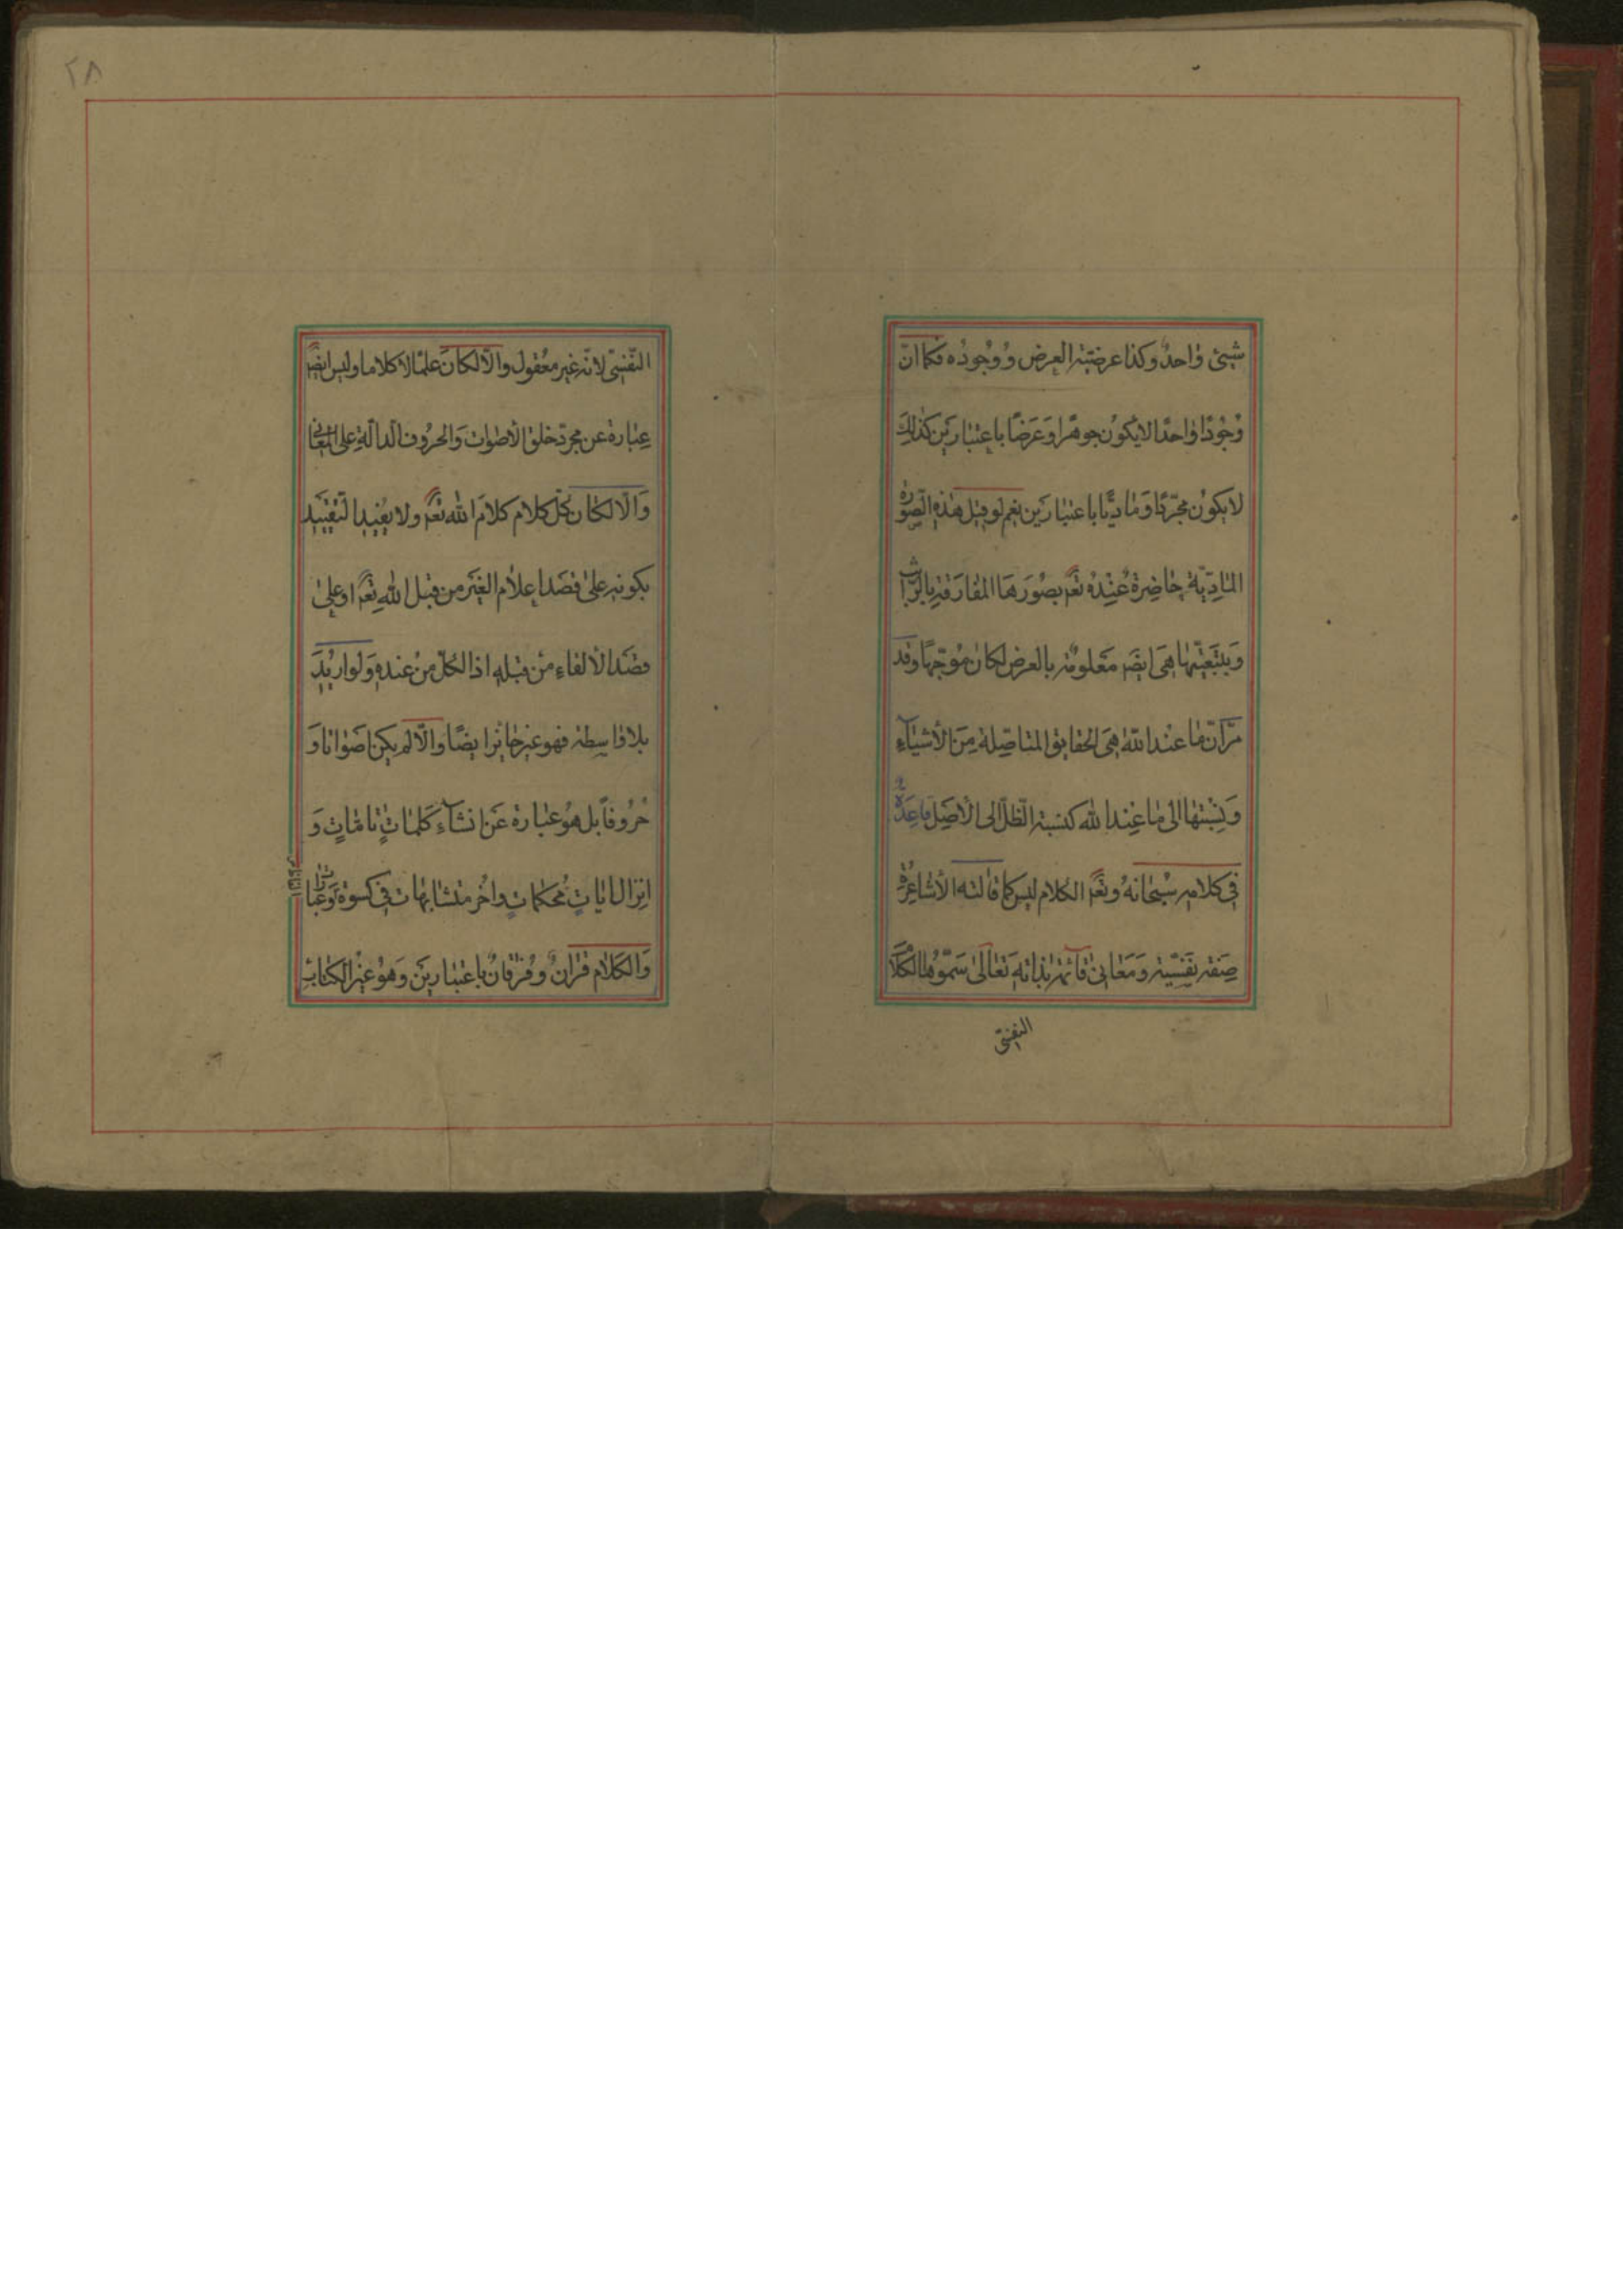 شیئ واحدٌ وکذا عرضیّة العرض و وُجُودُه فکما انّ
وُجُودًا واحدًا لایکوُن جوهرا وَعَرَضًا باِعتبارَین کذلِكَ
لایکوُن مجرّدًا وَمادیًّا باعتبارَین نعم لوقیل هٰذهِ الصّورة
المٰادّیّة حاضِرة عُنِدهُ تعٰ بصُوَرهَا المُفارَقةِ بالذّات
وَبتبعیّتِهٰا هِیَ ایضَ مَعلومُة بالعرض لکان مُوَجّهًا وقد
مَرّ انّ ما عنداللّه هِیَ الحقایق المتاصّلة مِنَ الأشیٰآءِ
وَنِسْبَتهٰا الی مٰا عِنداللّه کنسبة الظلّ الی الأصل قاعِدَة
فی کلامِه سُبْحٰانهُ وتعٰ الکلام لیس کما قالته الأشاعِرُة
صِفة نفسیّة وَمَعٰانیَ قآئمة بذاتِهَ تعٰالیٰ سمّوُها الکلام
النفسیّ
٢٨
النّفسیّ لانّه غیر معقول والّا لکانَ علمًا لا کلاما ولیس ایضَ
عبٰارة عن مجرّد خلق الأصوات وَالحرُوف الدالّة علی المعٰانی
وَالّا لکٰان کلّ کلام کلامَ اللّه تعٰ ولا یفُید التّقیید
بکونِه علیٰ قصَد اعلام الغیَر من قبل اللّهِ تعٰ او علیٰ
قصَد الألقاءِ مَن قبلهِ اذ الکلّ منْ عندِه وَلو اریُدَ
بلا واسِطة فهو غیر جائز ایضًا والّا لم یکن اصَواتا وَ
حُرُوفاً بل هوُ عبٰارة عَن انشآءِ کَلمٰاتٍ تامّاتٍ وَ
انزال ایٰاتٍ محُکماتٍ واُخر متشابهات فی کسوة وَعبٰارة
وَالکلام قراٰنٌ وفُرقانٌ باعتبارین وَهوُ غیْر الکتاب